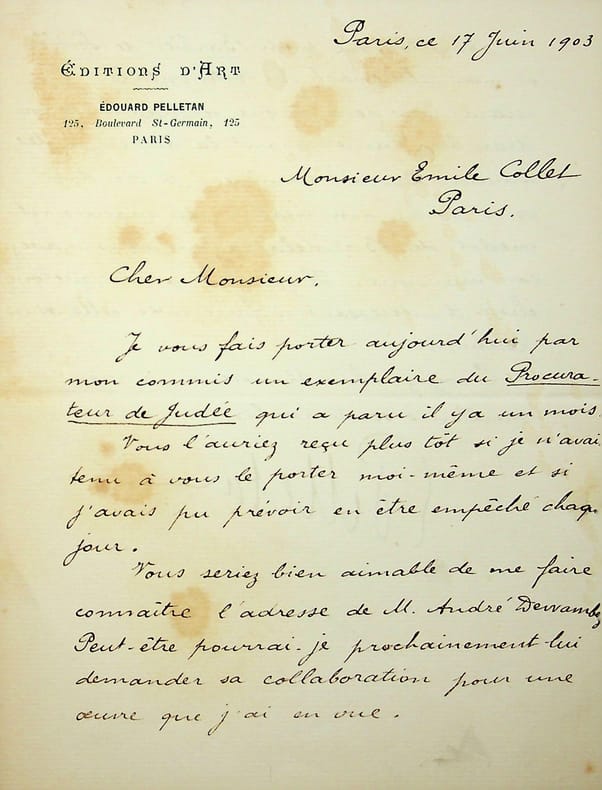 Paris, ce 17 Juin 1903
ÉDITIONS D'ART
ÉDOUARD PELLETAN
125, Boulevard St-Germain, 125
PARIS
Monsieur Emile Collet
Paris.
Cher Monsieur,
Je vous fais porter aujourd'hui par
mon commis un exemplaire du Procura-
teur de Judée qui a paru il y a un mois.
Vous l'auriez reçu plus tôt si je n'avai
tenu à vous le porter moi-même et si
j'avais pu prévoir en être empêché chaq
jour.
Vous seriez bien aimable de me faire
connaître l'adresse de M. André Devambez
Peut-être pourrai-je prochainement lui
demander sa collaboration pour une
œuvre que j'ai en vue.